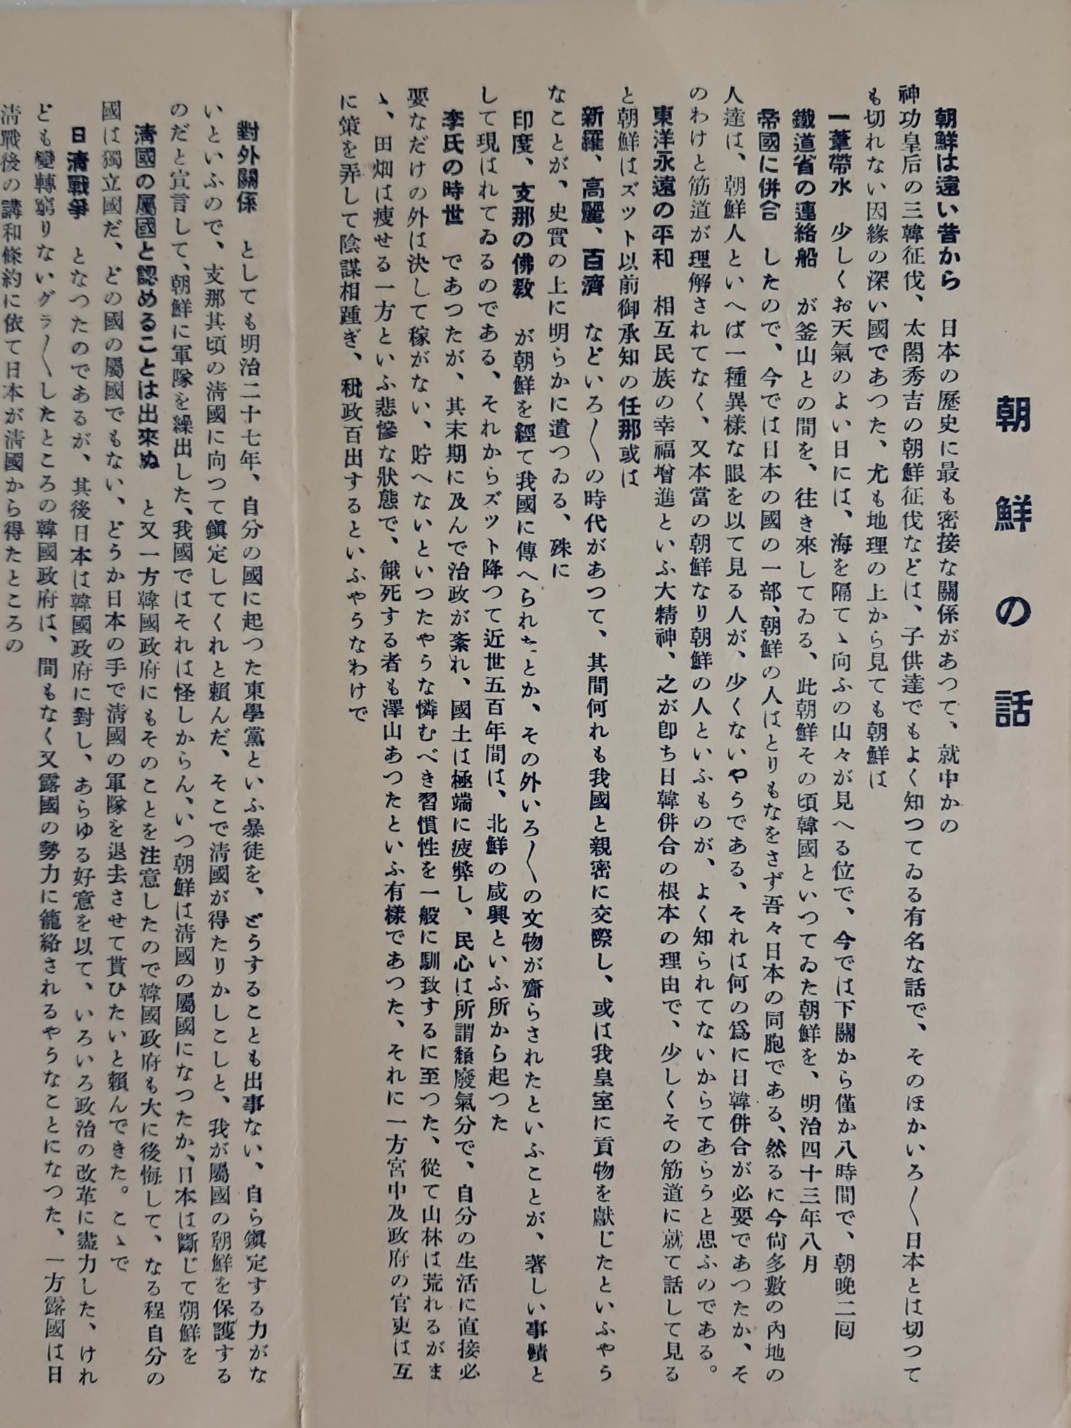 朝鮮の話
朝鮮は遠い昔から　日本の歷史に最も密接な關係があつて、就中かの
神功皇后の三韓征伐、太閤秀吉の朝鮮征伐などは、子供達でもよく知つてゐる有名な話で、そのほかいろ〱日本とは切つて
も切れない因緣の深い國であつた、尤も地理の上から見ても朝鮮は
一葦帶水　少しくお天氣のよい日には、海を隔てゝ向ふの山々が見へる位で、今では下關から僅か八時間で、朝晩二囘
鐵道省の連絡船　が釜山との間を、往き來してゐる、此朝鮮その頃韓國といつてゐた朝鮮を、明治四十三年八月
帝國に併合　したので、今では日本の國の一部、朝鮮の人はとりもなをさず吾々日本の同胞である、然るに今尙多數の內地の
人達は、朝鮮人といへば一種異樣な眼を以て見る人が、少くないやうである、それは何の爲に日韓併合が必要であつたか、そ
のわけと筋道が理解されてなく、又本當の朝鮮なり朝鮮の人といふものが、よく知られてないからてあらうと思ふのである。
東洋永遠の平和　相互民族の幸福增進といふ大精神、之が卽ち日韓併合の根本の理由で、少しくその筋道に就て話して見る
と朝鮮はズット以前御承知の任那或は
新羅、高麗、百濟　などいろ〱の時代があつて、其間何れも我國と親密に交際し、或は我皇室に貢物を獻じたといふやう
なことが、史實の上に明らかに遺つゐる、殊に
印度、支那の佛敎　が朝鮮を經て我國に傳へられたとか、その外いろ〱の文物が齎らされたといふことが、著しい事蹟と
して現はれてゐるのである、それからズット降つて近世五百年間は、北鮮の咸興といふ所から起つた
李氏の時世　であつたが、其末期に及んで治政が紊れ、國土は極端に疲弊し、民心は所謂頽廢氣分で、自分の生活に直接必
要なだけの外は決して稼がない、貯へないといつたやうな憐むべき習慣性を一般に馴致するに至つた、從て山林は荒れるがま
ゝ、田畑は瘦せる一方といふ悲慘な狀態で、餓死する者も澤山あつたといふ有樣であつた、それに一方宮中及政府の官吏は互
に策を弄して陰謀相踵ぎ、秕政百出するといふやうなわけで
對外關係　としても明治二十七年、自分の國に起つた東學黨といふ暴徒を、どうすることも出事ない、自ら鎭定する力がな
いといふので、支那其頃の淸國に向つて鎭定してくれと賴んだ、そこで淸國が得たりかしこしと、我が屬國の朝鮮を保護する
のだと宣言して、朝鮮に軍隊を繰出した、我國ではそれは怪しからん、いつ朝鮮は淸國の屬國になつたか、日本は斷じて朝鮮を
淸國の屬國と認めることは出來ぬ　と又一方韓國政府にもそのことを注意したので韓國政府も大に後悔して、なる程自分の
國は獨立國だ、どの國の屬國でもない、どうか日本の手で淸國の軍隊を退去させて貰ひたいと賴んできた。こゝで
日淸戰爭　となつたのであるが、其後日本は韓國政府に對し、あらゆる好意を以て、いろいろ政治の改革に盡力した、けれ
ども變轉窮りないグラ〱したところの韓國政府は、間もなく又露國の勢力に籠絡されるやうなことになつた、一方露國は日
淸戰後の講和條約に依て日本が淸國から得たところの